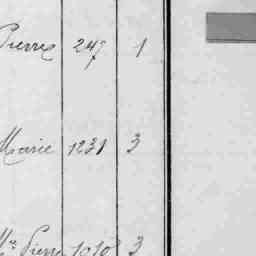 Pierre 247 1
Marie 1231 3
Pierre 1010 3